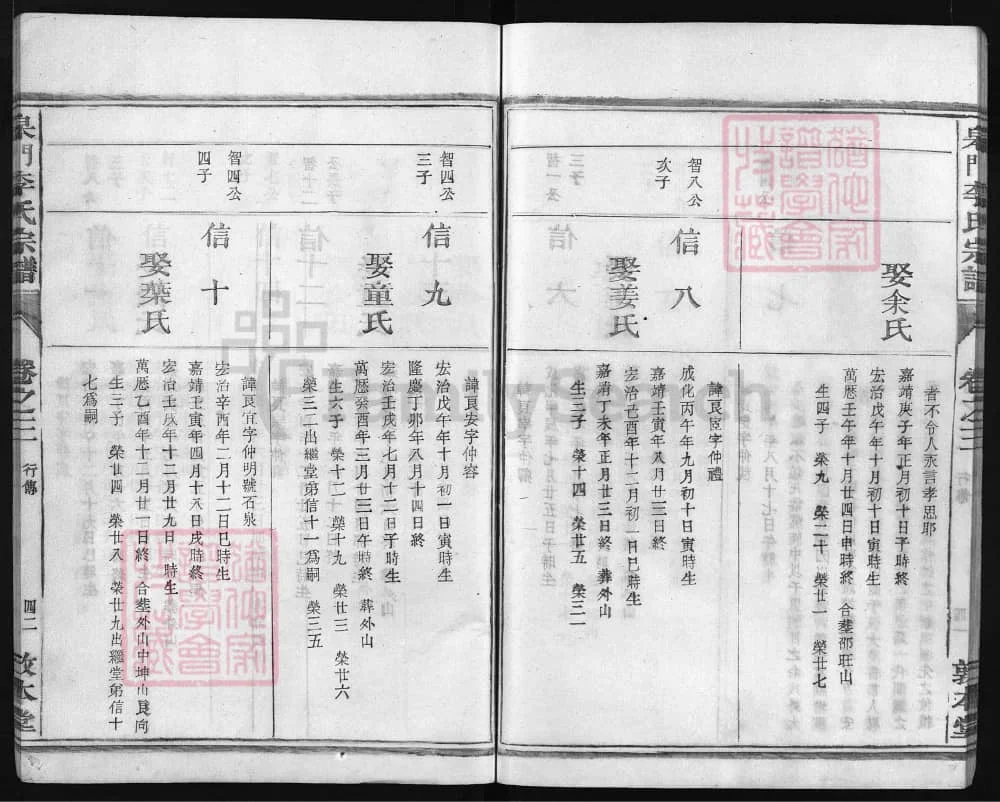 娶余氏
者不令人永言孝思耶
嘉靖庚子年正月初十日子時終
宏治戊午年十月初十日寅時生
萬厯壬午年十月廿四日申時終 合塟邵旺山
生四子 榮九 榮二十 榮廿一 榮廿七
智八公
次子
信八
娶姜氏
諱良臣字仲禮
成化丙午年九月初十日寅時生
嘉靖壬寅年八月廿三日終
宏治己酉年十二月初一日巳時生
嘉靖丁未年正月廿三日終 葬外山
生三子 榮十四 榮廿五 榮三一
智四公
三子
信九
娶童氏
諱良安字仲容
宏治戊午年十月初一日寅時生
隆慶丁卯年八月十四日終
宏治壬戌年七月十二日子時生
萬厯癸酉年三月廿三日午時終 葬外山
生六子 榮十二 榮十九 榮廿三 榮廿六
榮三二出繼堂弟信十一爲嗣 榮三五
智四公
四子
信十
娶葉氏
諱良宜字仲明號石泉
宏治辛酉年二月十二日巳時生
嘉靖壬寅年四月十六日戌時終
宏治壬戌年十二月廿九日 時生
萬厯乙酉年十二月廿一日終 合塟外山中坤山艮向
生三子 榮廿四 榮廿八 榮廿九出繼堂弟信十
七爲嗣
李氏宗譜 卷之三 行傳 四二
FamilySearch